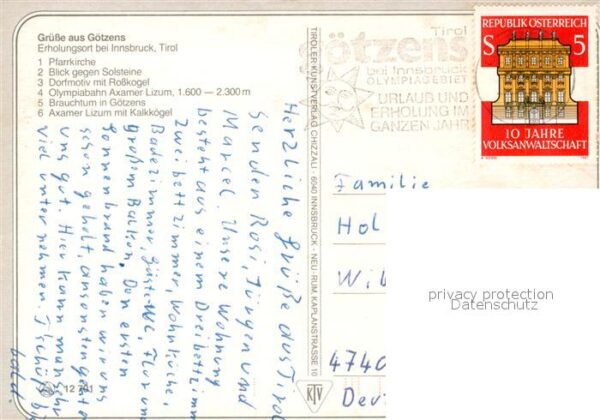 Grüße aus Götzens
Erholungsort bei Innsbruck, Tirol
1 Pfarrkirche
2 Blick gegen Solsteine
3 Dorfmotiv mit Roßkogel
4 Olympiabahn Axamer Lizum, 1.600 — 2.300 m
5 Brauchtum in Götzens
6 Axamer Lizum mit Kalkkögel
Herzliche Grüße aus Tirol
senden Rosi, Jürgen und
Marcel. Unsere Wohnung
besteht aus einem Dreibettzimm
Zweibettzimmer, Wohnküche,
Badezimmer, Gäste-WC Flur un
großem Balkon. Den ersten
Sonnenbrand haben wir uns
schon geholt, ansonsten geht
uns gut. Hier kann man sehr
viel unternehmen. Tschüß bis
bald.
12 701
TIROLER KUNSTVERLAG CHIZZALI · 6040 INNSBRUCK - NEU-RUM, KAPLANSTRASSE 10
KTV
Tirol
götzens
bei Innsbruck
OLYMPIAGEBIET
URLAUB UND
ERHOLUNG IM
GANZEN JAHR
REPUBLIK ÖSTERREICH
S 5
10 JAHRE
VOLKSANWALTSCHAFT
Familie
Hol
Wil
4740
Deu
privacy protection
Datenschutz